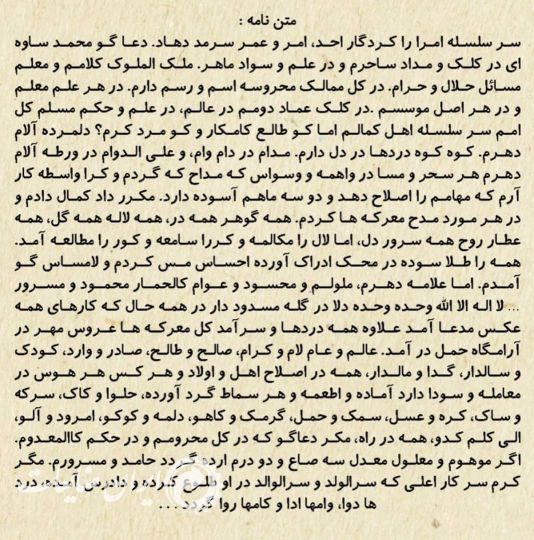 متن نامه :
سر سلسله امرا را کردگار احد، امر و عمر سرمد دهاد. دعا گو محمد ساوه
ای در کلک و مداد ساحرم و در علم و سواد ماهر. ملک الملوک کلامم و معلم
مسائل حلال و حرام. در کل ممالک محروسه اسم و رسم دارم. در هر علم معلم
و در هر اصل موسسم .در کلک عماد دومم در عالم، در علم و حکم مسلم کل
امم سر سلسله اهل کمالم اما کو طالع کامکار و کو مرد کرم؟ دلمرده آلام
دهرم. کوه کوه دردها در دل دارم. مدام در دام وام، و علی الدوام در ورطه آلام
دهرم هر سحر و مسا در واهمه و وسواس که مداح که گردم و کرا واسطه کار
آرم که مهامم را اصلاح دهد و دو سه ماهم آسوده دارد. مکرر داد کمال دادم و
در هر مورد مدح معرکه ها کردم. همه گوهر همه در، همه لاله همه گل، همه
عطار روح همه سرور دل، اما لال را مکالمه و کررا سامعه و کور را مطالعه آمد.
همه را طلا سوده در محک ادراک آورده احساس مس کردم و لامساس گو
آمدم. اما علامه دهرم، ملولم و محسود و عوام کالحمار محمود و مسرور
... لا اله الا الله وحده وحده دلا در گله مسدود دار در همه حال که کارهای همه
عکس مدعا آمد علاوه همه دردها و سرآمد کل معرکه ها عروس مهر در
آرامگاه حمل در آمد. عالم و عام لام و کرام، صالح و طالح، صادر و وارد، کودک
و سالدار، گدا و مالدار، همه در اصلاح اهل و اولاد و هر کس هر هوس در
معامله و سودا دارد آماده و اطعمه و هر سماط گرد آورده، حلوا و کاک، سرکه
و ساک، کره و عسل، سمک و حمل، گرمک و کاهو، دلمه و کوکو، امرود و آلو،
الی کلم کدو، همه در راه، مکر دعاگو که در کل محرومم و در حکم کاالمعدوم.
اگر موهوم و معلول معدل سه صاع و دو درم ارده گردد حامد و مسرورم. مگر
کرم سر کار اعلی که سرالولد و سرالوالد در او طلوع کرده و دادرس آمده درد
ها دوا، وامها ادا و کامها روا گردد . . .